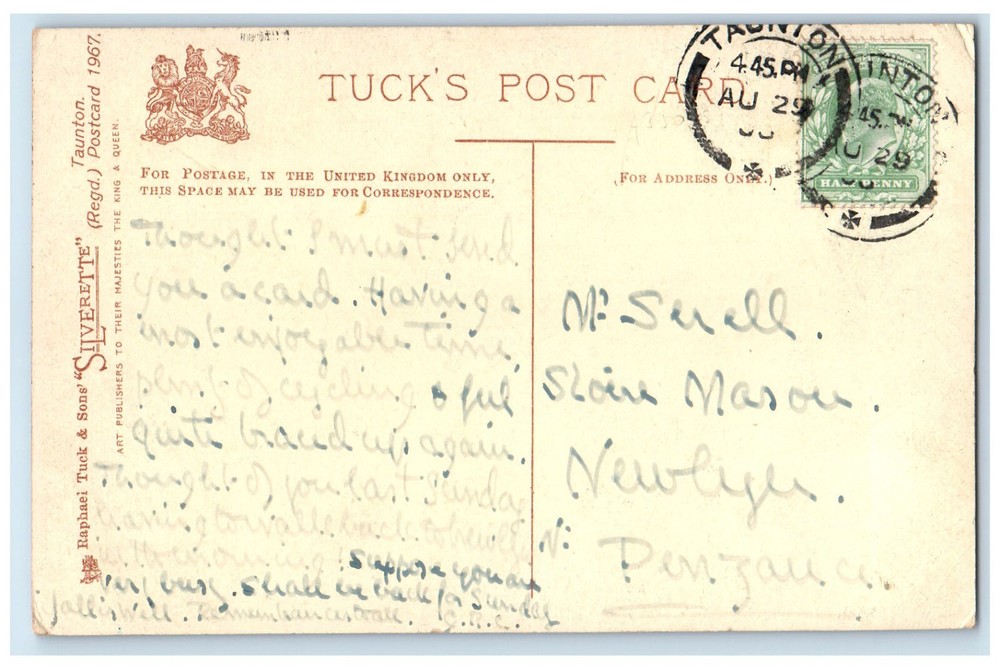 TUCK'S POST CARD
FOR POSTAGE, IN THE UNITED KINGDOM ONLY,
THIS SPACE MAY BE USED FOR CORRESPONDENCE.
(FOR ADDRESS ONLY.)
Raphael Tuck & Sons' "SILVERETTE" Taunton.
(Regd.) Postcard 1967.
ART PUBLISHERS TO THEIR MAJESTIES THE KING & QUEEN.
TAUNTON
4.45.PM
AU 29
HALFPENNY
Thought I must send
you a card. Having a
most enjoyable time
plenty of cycling & feel
quite braced up again.
Thought of you last Sunday
having to walk back to Newlyn
in the morning! Suppose you are
very busy. Shall be back for Sunday
All's well. to all. C.R.C.
Mr Serell.
Stone Mason.
Newlyn.
Nr Penzance.